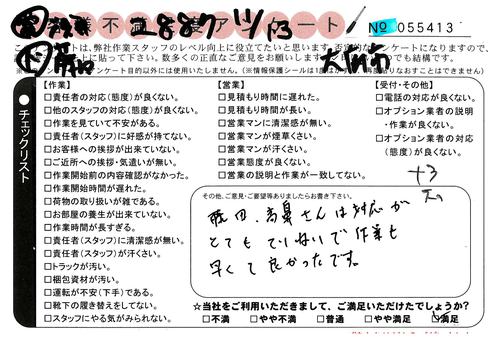 作業不満度アンケート
№ 055413
このアンケートは、弊社作業スタッフのレベル向上に役立てたいと思います。否定的なアンケートになりますので、
上に貼って下さい。数多くの正直なご意見をお願いします。
アンケート目的以外には使用いたしません。(※情報保護シールは1回
チェックリスト
【作業】
□責任者の対応(態度)が良くない。
□他のスタッフの対応(態度)が良くない。
□作業を見ていて不安がある。
□責任者(スタッフ)に好感が持てない。
□お客様への挨拶が出来ていない。
□ご近所への挨拶・気遣いが無い。
□作業開始前の内容確認がなかった。
□作業開始時間が遅れた。
□荷物の取り扱いが雑である。
□お部屋の養生が出来ていない。
□作業時間が長すぎる。
□責任者(スタッフ)に清潔感が無い。
□責任者(スタッフ)が汗くさい。
□トラックが汚い。
□梱包資材が汚い。
□運転が不安(下手)である。
□靴下の履き替えをしてない。
□スタッフにやる気がみられない。
【営業】
□見積もり時間に遅れた。
□見積もり時間が長い。
□営業マンに清潔感が無い。
□営業マンが煙草くさい。
□営業マンが汗くさい。
□営業態度が良くない。
□営業の説明と作業が一致してない。
【受付・その他】
□電話の対応が良くない。
□オプション業者の説明
・作業が良くない。
□オプション業者の対応
(態度)が良くない。
その他、ご意見・ご要望等ありましたらお書き下さい。
さんは対応が
とてもていねいで作業も
早くて良かったです。
☆当社をご利用いただきまして、ご満足いただけたでしょうか?
□不満 □やや不満 □普通 □やや満足 □満足